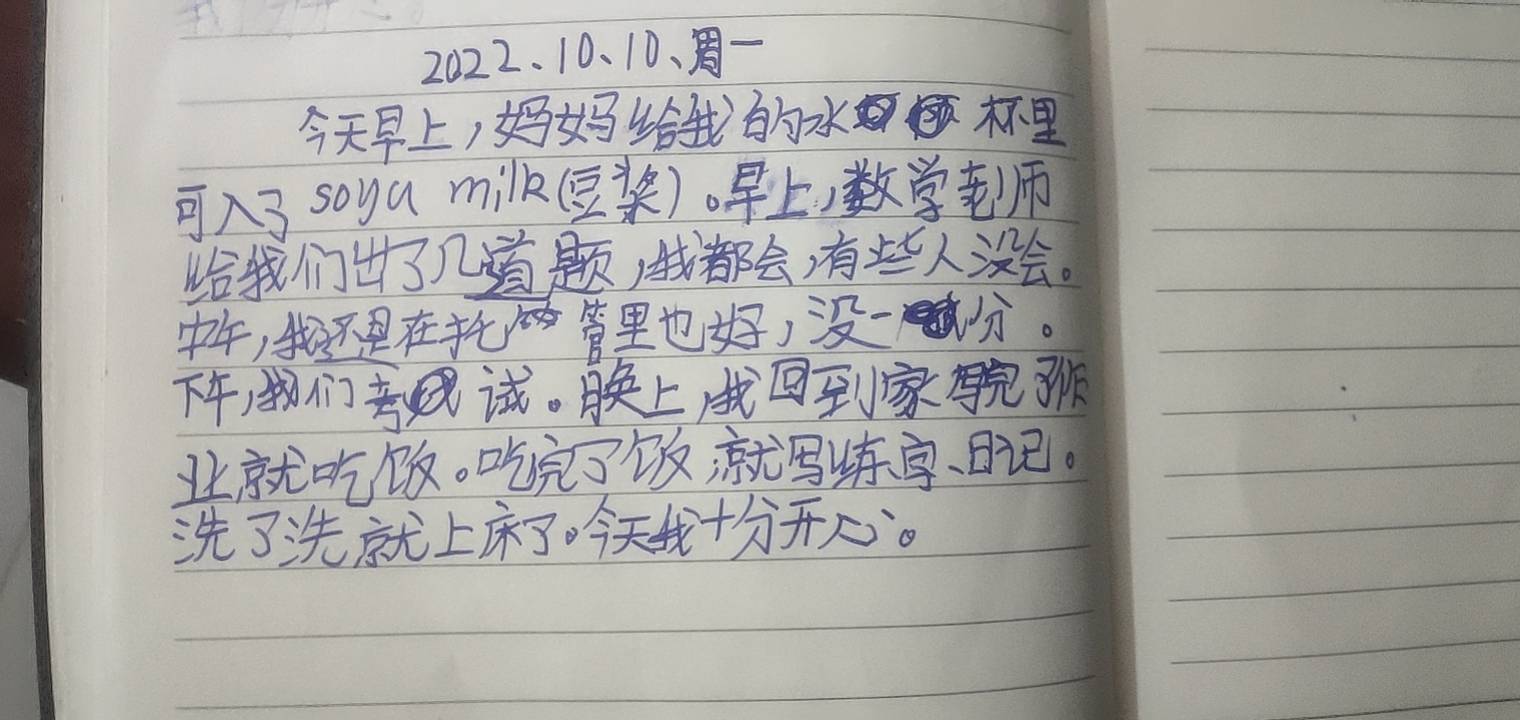 2022、10、10、周一
今天早上，妈妈给我的水杯里
可入了soya milk(豆浆)。早上，数学老师
给我们出了几道题，我都会，有些人没会。
中午，我还是在托管里也好，没一分。
下午，我们考试。晚上，我回到家写完了作
业就吃饭。吃完了饭，就写练字、日记。
洗了洗就上床了。今天我十分开心。